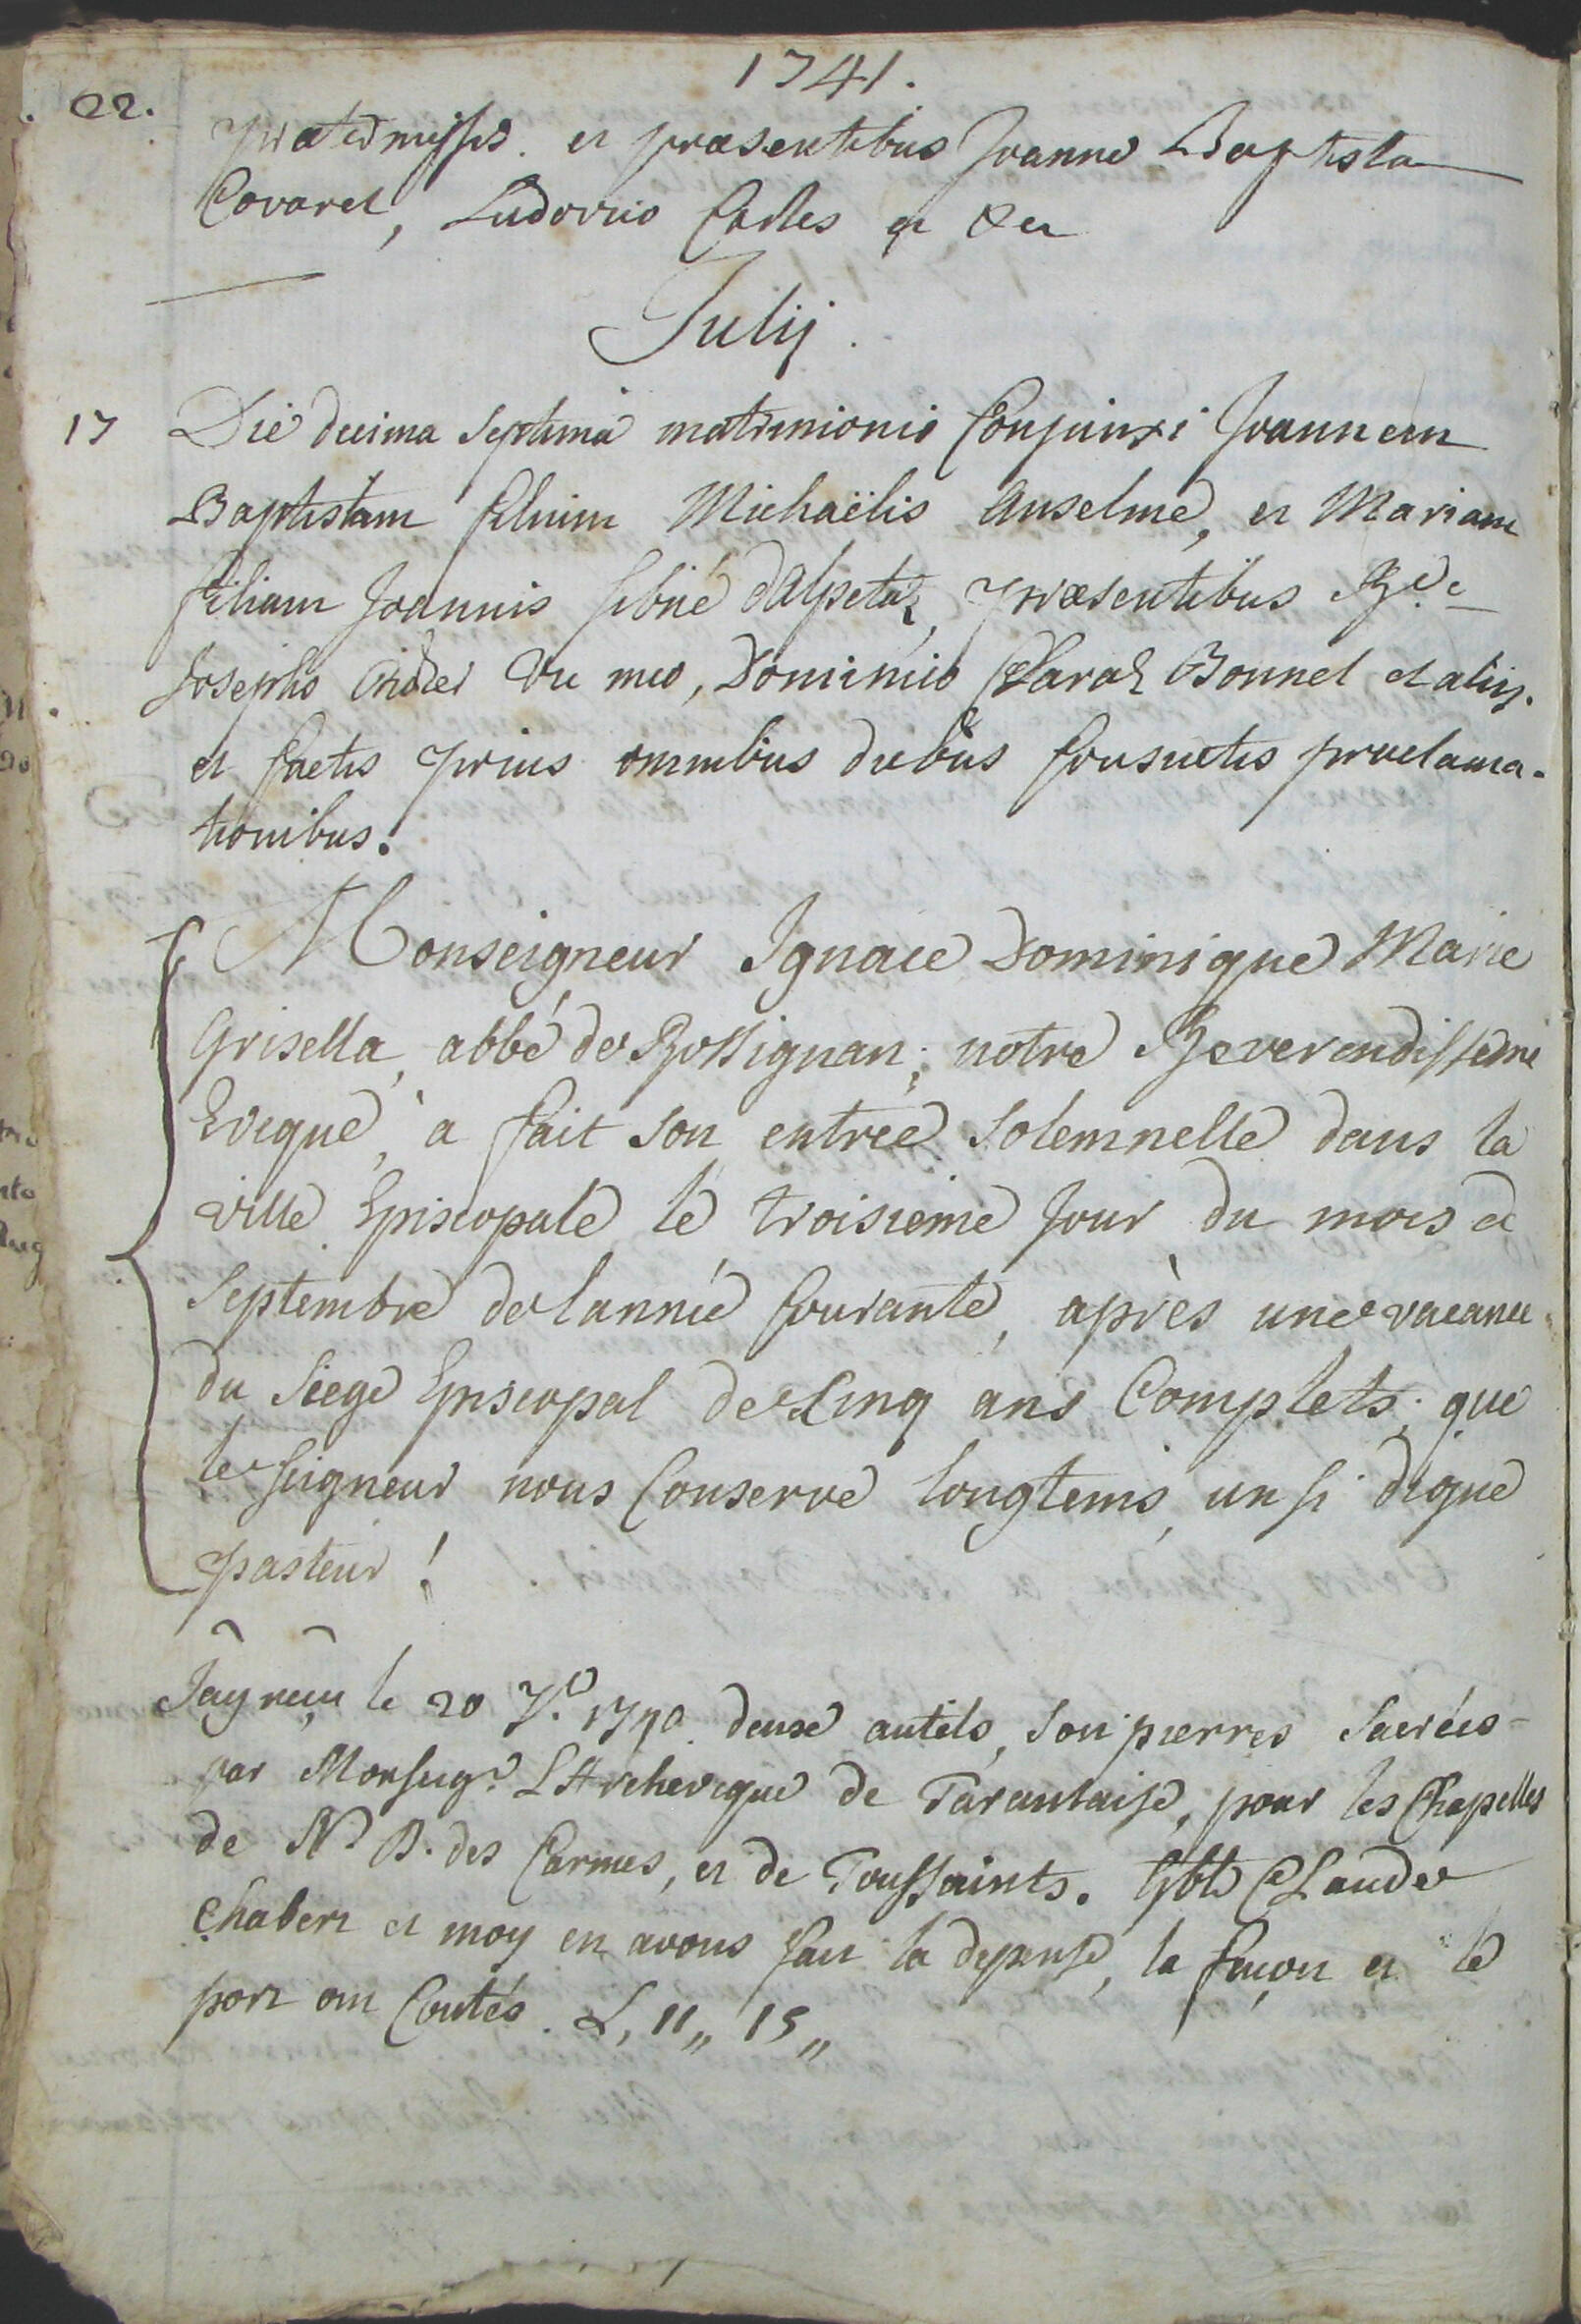 1741.
22.
prætermissis et præsentibus Joanne Baptista
Covarel, Ludovico Carles et &er
Julij.
17 Die decima septima matrimonio Conjunxi Joannem
Baptistam filium Michaëlis Anselme, et Mariam
filiam Joannis sibué dalpetaz, præsentibus Rde
Josepho Vice meo, Dominico Claraz Bonnel et alijs.
et factis prius omnibus diebus Consuetis proclama-
tionibus.
Monseigneur Ignace Dominique Marie
Grisella, abbé de Rossignan, notre Reverendissime
Eveque, a fait son entrée Solemnelle dans la
ville Episcopale le troisieme Jour du mois de
Septembre de lannée Courante, après une vacance
du Siege Episcopal de Cinq ans Complets. que
le seigneur nous Conserve longtems, un si digne
pasteur!
Jay reçu le 20 7.e 1740 deux autels, sont pierres Sacrées
par Monseigr. L'Archeveque de Tarantaise, pour les Chapelles
de N. D. des Carmes, et de Toussaints. Claude
Chaberz et moy en avons fait la depense, la façon et le
port ont Coutés. L, 11,, 15,,